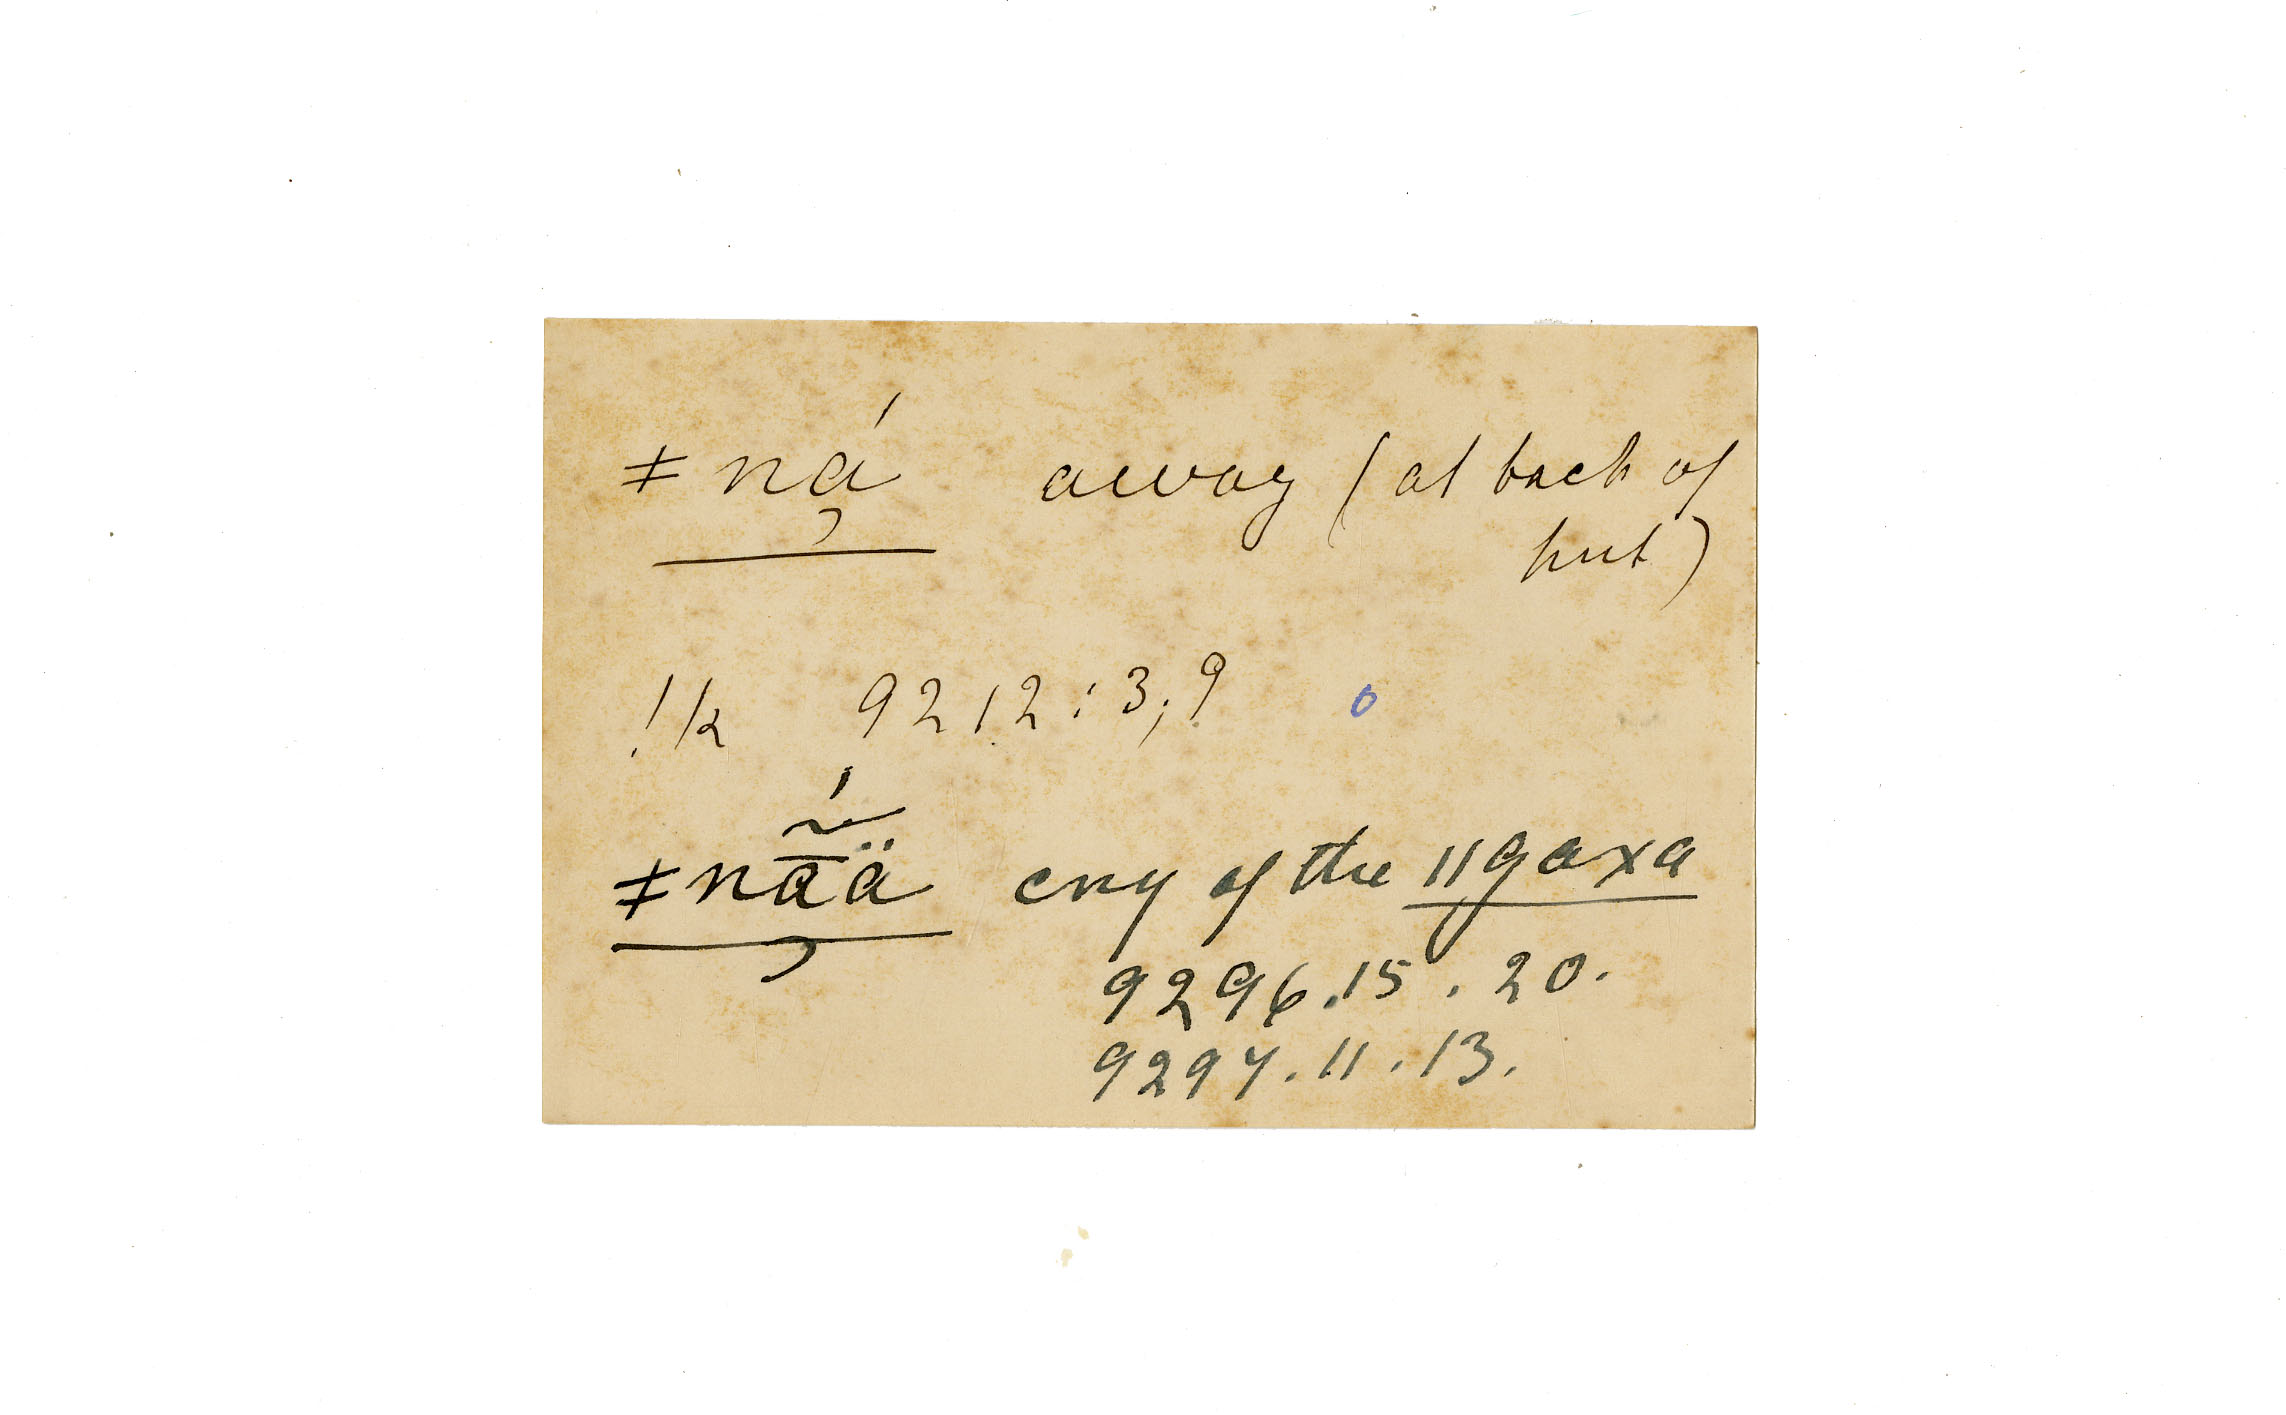 ǂná̡ away (at back of
hut)
!k 9212:3,9 o
ǂnā̡̃́ä cry of the ǁgaxa
9296.15.20.
9297.11.13.